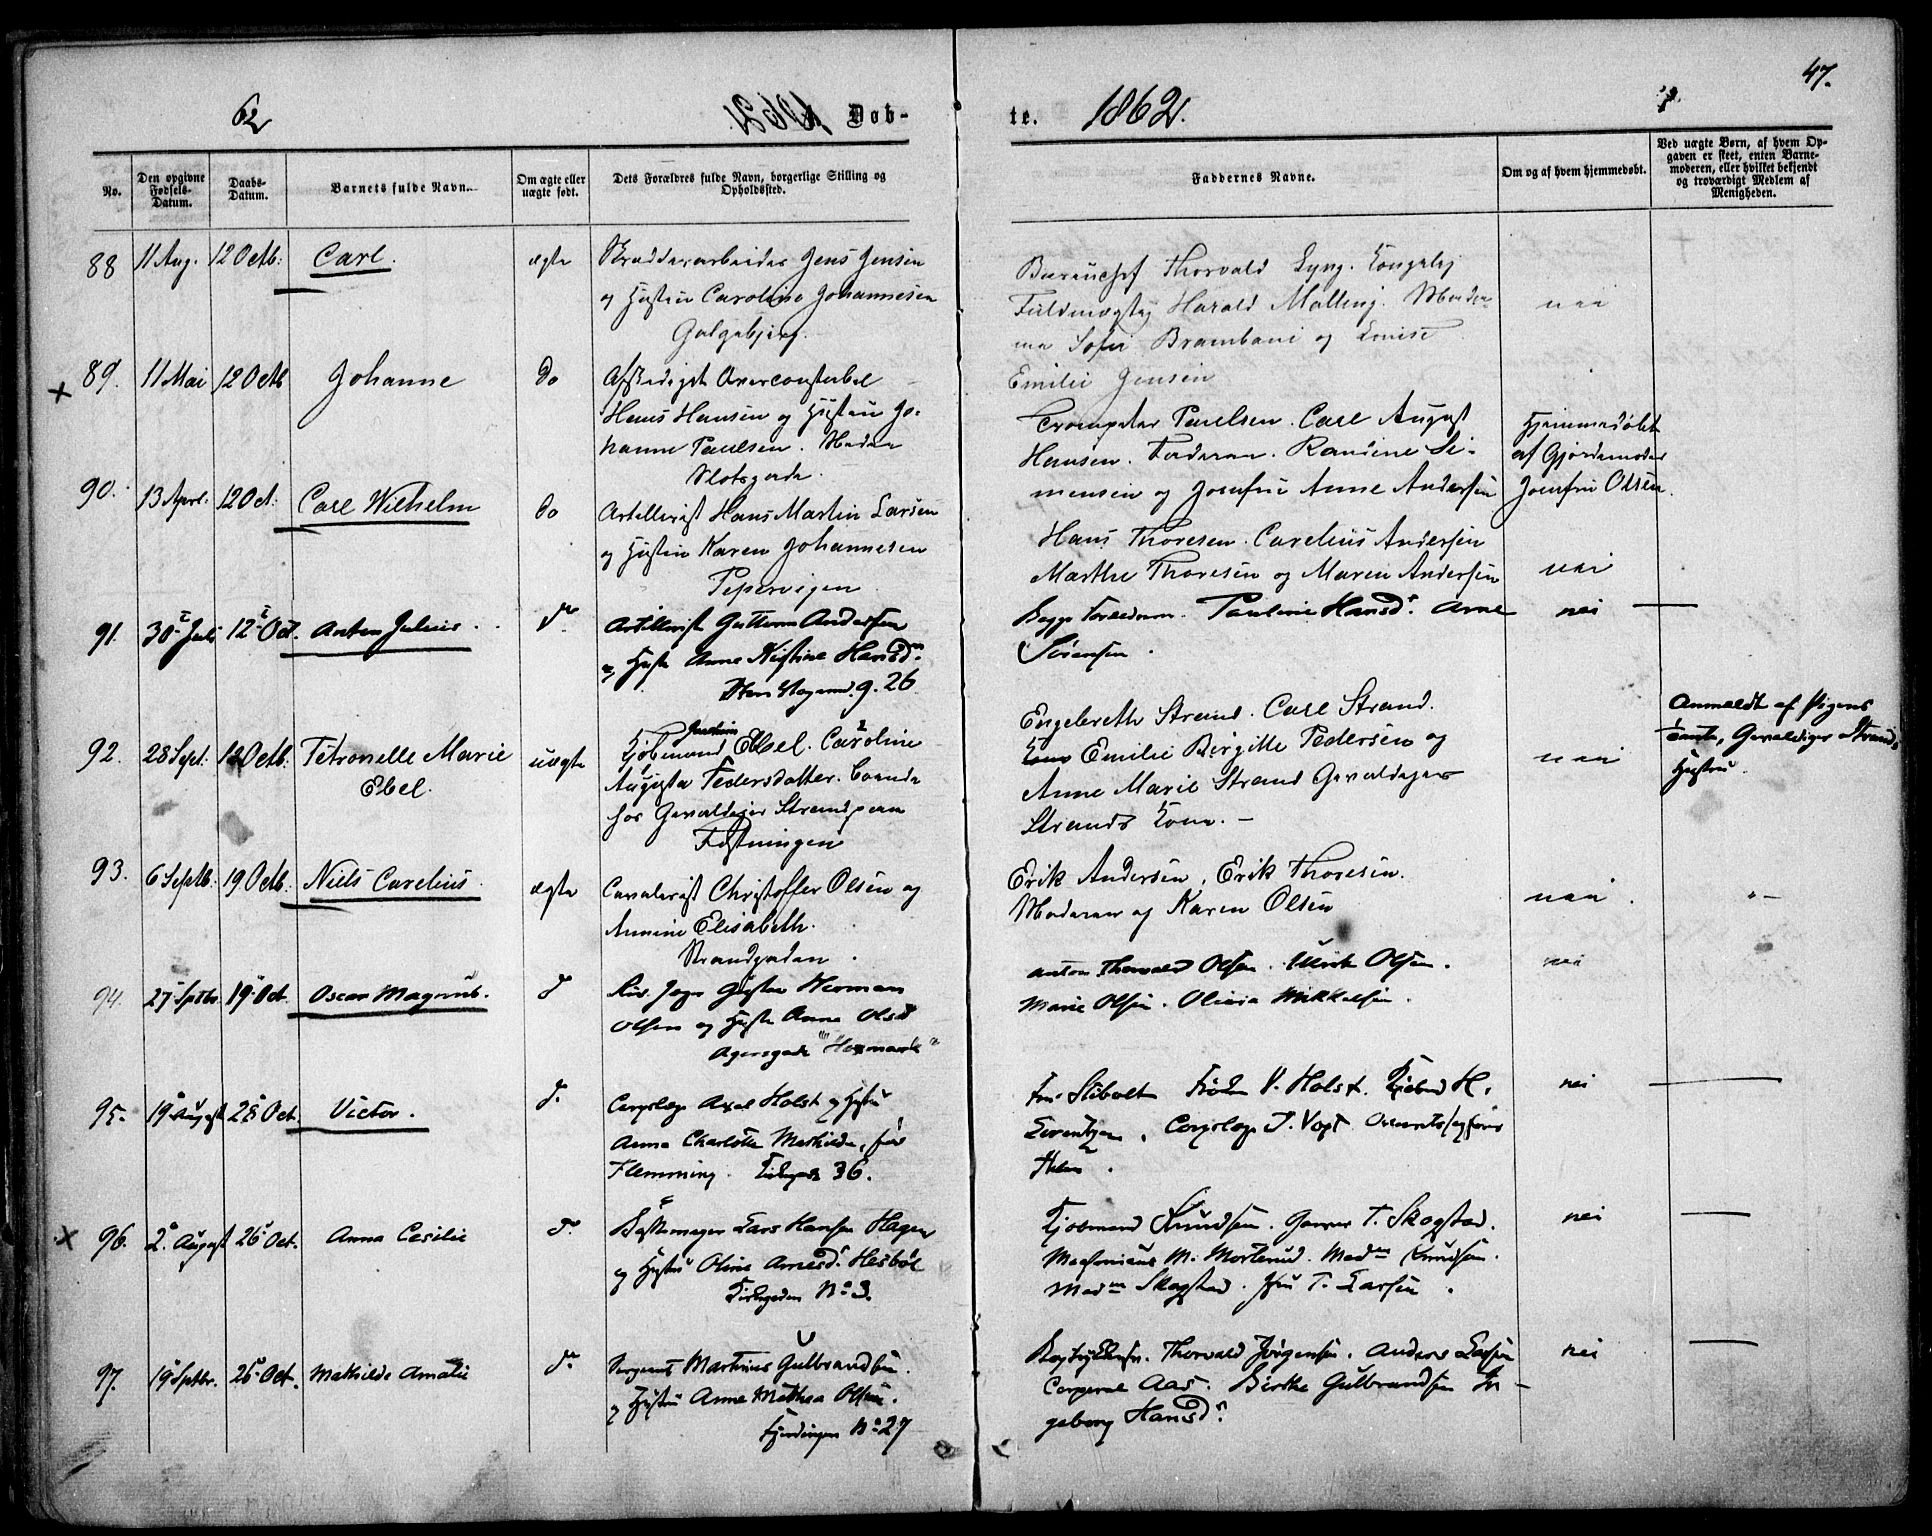 62
Døb-
te. 1862.
47.
No.
Den opgivne Fødsels-Datum.
Daabs-Datum.
Barnets fulde Navn.
Om ægte eller uægte født.
Dets Forældres fulde Navn, borgerlige Stilling og Opholdssted.
Faddernes Navne.
Om og af hvem hjemmedøbt.
Ved uægte Børn, af hvem Opgaven er skeet, enten Barnemoderen, eller hvilket bekjendt og troværdigt Medlem af Menigheden.
88 11 Aug. 12 Octb. Carl. ægte
Skrædderarbeider Jens Jensen
og Hustru Caroline Johannesen
Galgebjerg.
Bureauchef Thorvald Lyng. Kongelig
Fuldmægtig Harald Malling. Moder-
Brambani og Louise
Emilie Jensen
nei
89. 11 Mai 12 Octb Johanne do
Afskediget Overconstabel
Hans Hansen og Hustru Jo-
hanne Paulsen. Nedre
Slotsgade.
Trompeter Paulsen. Carl August
Hansen. Faderen. Randine Si-
mensen og Josefine Anne Andersen
Hjemmedøbt
af Gjordemoder
Josefine Olsen.
90. 13 April. 12 Oct. Carl Wilhelm do
Artillerist Hans Martin Larsen
og Hustru Karen Johannesen
Pipervigen
Hans Thoresen. Carelius Andersen
Marthe Thoresen og Maren Andersen
nei
91. 30 Juli 12 Oct. Anton Julius. do
Artillerist Guttorm Andersen
og Hustr Anne Kristine Hansd.
g. 26
Begge Forældrene. Pauline Hansd. Arne
Sørensen.
nei
92. 28 Sept. 12 Octb. Petronelle Marie
Ebel.
uægte
Kjøbmand Ebel. Caroline
Augusta Pedersdatter. boende
hos Gevaldiger Strand paa
Fæstningen
Engebreth Strand. Carl Strand.
Emilie Birgitte Pedersen og
Anne Marie Strand Gevaldiger
Strands Kone.
nei
Anmeldt af Pigens
Tante, Gevaldiger Strands
Hustru.
93. 6 Septb. 19 Octb. Niels Carelius. ægte
Cavalerist Christoffer Olsen og
Annine Elisabeth.
Strandgaden.
Erik Andersen, Erik Thoresen.
Moderen og Karen Olsen
nei
94. 27 Sptbr. 19 Oct. Oscar Magnus. d
Gustav Herman
Olsen og Hustr Anne Olsd
Agersgade
Anton Thorvald Olsen. Ulrik Olsen.
Marie Olsen. Olivia Mikkelsen.
nei
95. 19 August 28 Oct. Victor. d.
Corpslæge Axel Holst og Hustru
Anna Charlotte Mathilde, før
Flemming. 36.
Fru Stibolt V. Holst. H.
Corpslæge J. Vogt
nei
96. 2 August 26 Oct. Anna Cesilie d.
Bøssemager Lars Hansen Hagen
og Hustru Oline Arnesd. Hesbøl
No 3.
Kjøbmand Knudsen. T. Skogstad.
M. Morterud. Madm Knudsen.
Madm Skogstad. Fru T. Larsen.
nei
97. 19 Sptbr. 26 Oct. Mathilde Amalie d.
Sergeant Martinus Gulbrandsen.
og Hustru Anne Mathea Olsen.
Fjerdingen No 27
Thorvald Jørgensen. Anders Larsen
Corporal Aas. Birthe Gulbrandsen In-
geborg Hansd.
nei